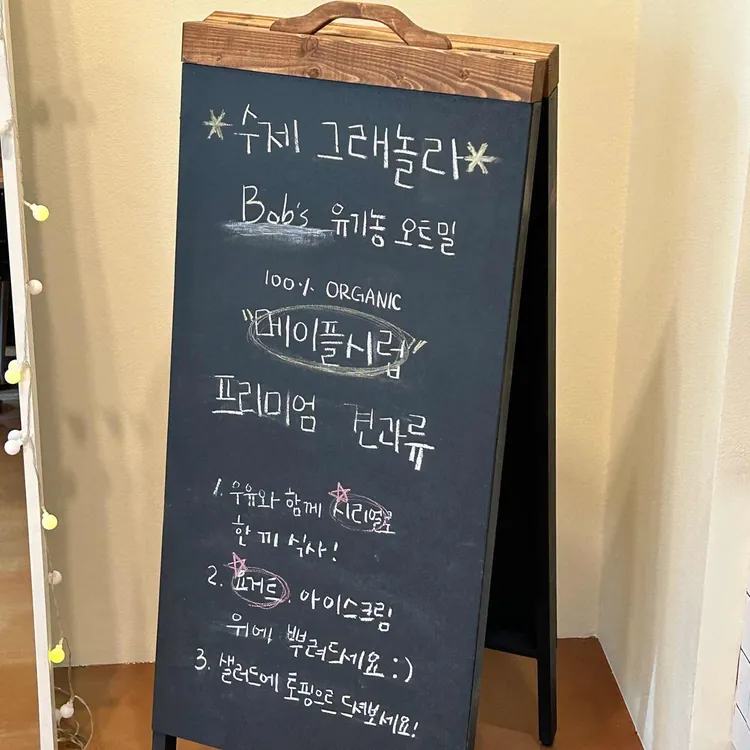 *수제 그래놀라*
Bob's 유기농 오트밀
100% ORGANIC
"메이플시럽"
프리미엄 견과류
1. 우유와 함께 시리얼로
한 끼 식사!
2. 요거트, 아이스크림
위에 뿌려드세요 :)
3. 샐러드에 토핑으로 드셔보세요!